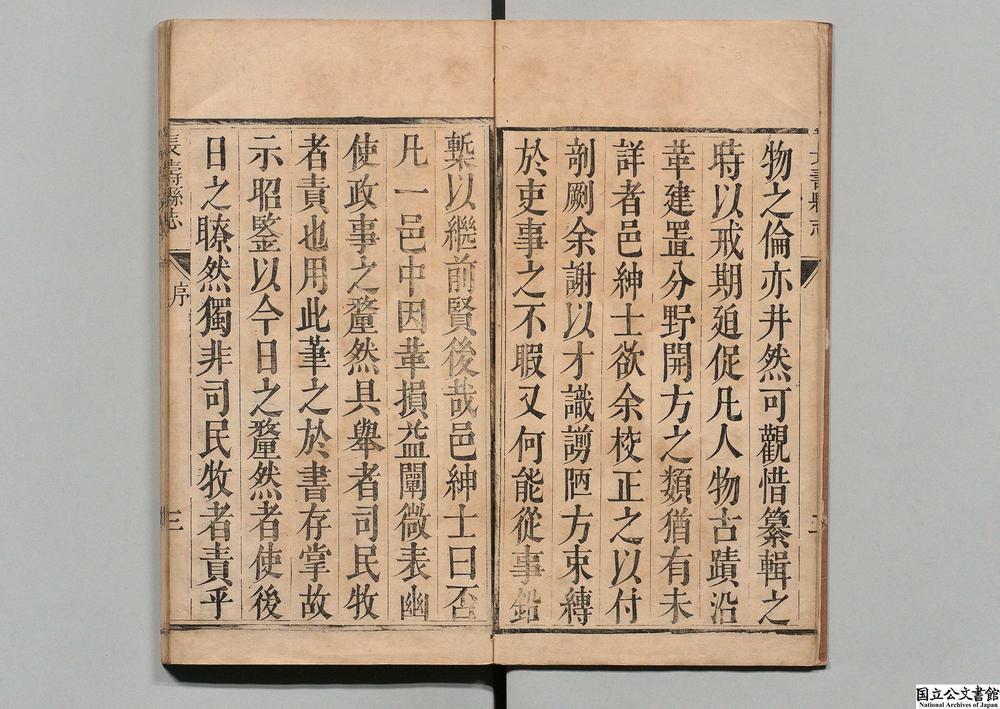 物之倫亦井然可觀惜纂輯之
時以戒期廹促凡人物古蹟沿
革建置分野開方之類猶有未
詳者邑紳士欲余挍正之以付
剞劂余謝以才識謭陋方束縳
於吏事之不暇又何能從事鉛
槧以繼前賢後哉邑紳士曰否
凡一邑中因革損益闡微表幽
使政事之釐然具舉者司民牧
者責也用此筆之於書存掌故
示昭鑒以今日之釐然者使後
日之瞭然獨非司民牧者責乎
長壽縣志
序
三
国立公文書館
National Archives of Japan